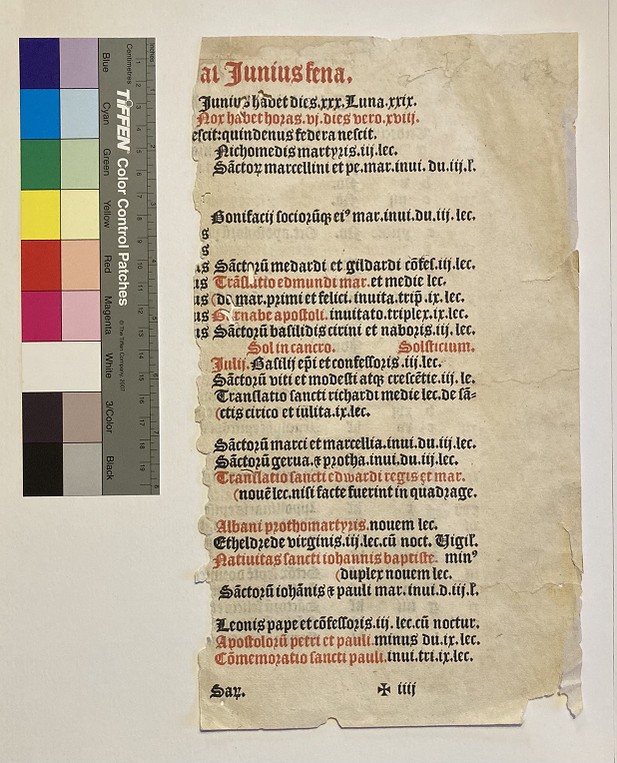 Blue
Cyan
Green
Yellow
Red
Magenta
White
3/Color
Black
TIFFEN Color Control Patches
© The Tiffen Company, 2007
Centimetres
Inches
at Junius fena.
Junius habet dies.xxx.Luna.xxix.
Nox habet horas.vj.dies vero.xviij.
escit:quindenus federa nescit.
Nichomedis martyris.iij.lec.
Sāctoꝝ marcellini et pe.mar.inui. du.iij.l̄.
Bonifacij socioꝝūqꝫ eiꝰ mar.inui.du.iij.lec.
s
s
us Sāctoꝝū medardi et gildardi cōfes.iij.lec.
us Trāslatio edmundi mar.et medie lec.
us (de mar.primi et felici. inuita.trip̄.ix.lec.
us Barnabe apostoli.inuitato.triplex.ix.lec.
us Sāctorū basilidis cirini et naboris.iij.lec.
Sol in cancro. Solsticium.
Julij.Basilij ep̄i et confessoris.iij.lec.
Sāctorū viti et modesti atqꝫ crescētie.iij.le.
Translatio sancti richardi medie lec.de sā-
(ctis cirico et iulita.ix.lec.
Sāctorū marci et marcellia.inui.du.iij.lec.
Sāctorū gerua.⁊ protha.inui.du.iij.lec.
Translatio sancti edwardi regis et mar.
(nouē lec.nisi facte fuerint in quadrage.
Albani prothomartyris.nouem lec.
Etheldrede virginis.iij.lec.cū noct. Vigil̄.
Natiuitas sancti iohannis baptiste. minꝰ
(duplex nouem lec.
Sāctorū iohānis ⁊ pauli mar. inui.d.iij.l̄.
Leonis pape et cōfessoris.iij. lec.cū noctur.
Apostolorū petri et pauli.minus du.ix.lec.
Cōmemoratio sancti pauli.inui.tri.ix.lec.
Saꝝ. ✠ iiij